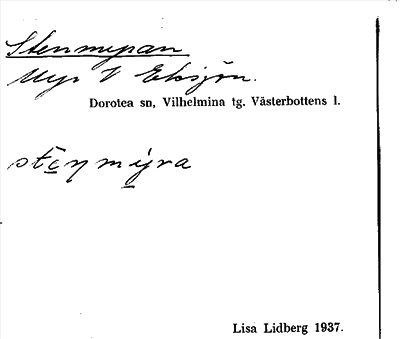 Stenmyran
Myr V Eksjön.
Dorotea sn, Vilhelmina tg. Västerbottens l.
stēŋ mýra
Lisa Lidberg 1937.